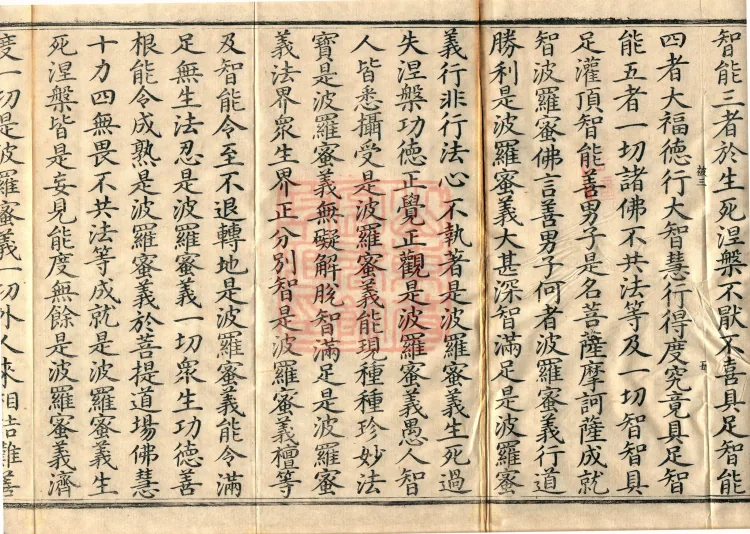 智能三者於生死涅槃不厭不喜具足智能
四者大福德行大智慧行得度究竟具足智
能五者一切諸佛不共法等及一切智智具
足灌頂智能善男子是名菩薩摩訶薩成就
智波羅蜜佛言善男子何者波羅蜜義行道
勝利是波羅蜜義大甚深智滿足是波羅蜜
義行非行法心不執著是波羅蜜義生死過
失涅槃功德正覺正觀是波羅蜜義愚人智
人皆悉攝受是波羅蜜義能現種種珍妙法
寶是波羅蜜義無礙解脫智滿足是波羅蜜
義法界衆生界正分別智是波羅蜜義檀等
及智能令至不退轉地是波羅蜜義能令滿
足無生法忍是波羅蜜義一切衆生功德善
根能令成熟是波羅蜜義於菩提道場佛慧
十力四無畏不共法等成就是波羅蜜義生
死涅槃皆是妄見能度無餘是波羅蜜義濟
度一切是波羅蜜義一切外人來相詰難善
五